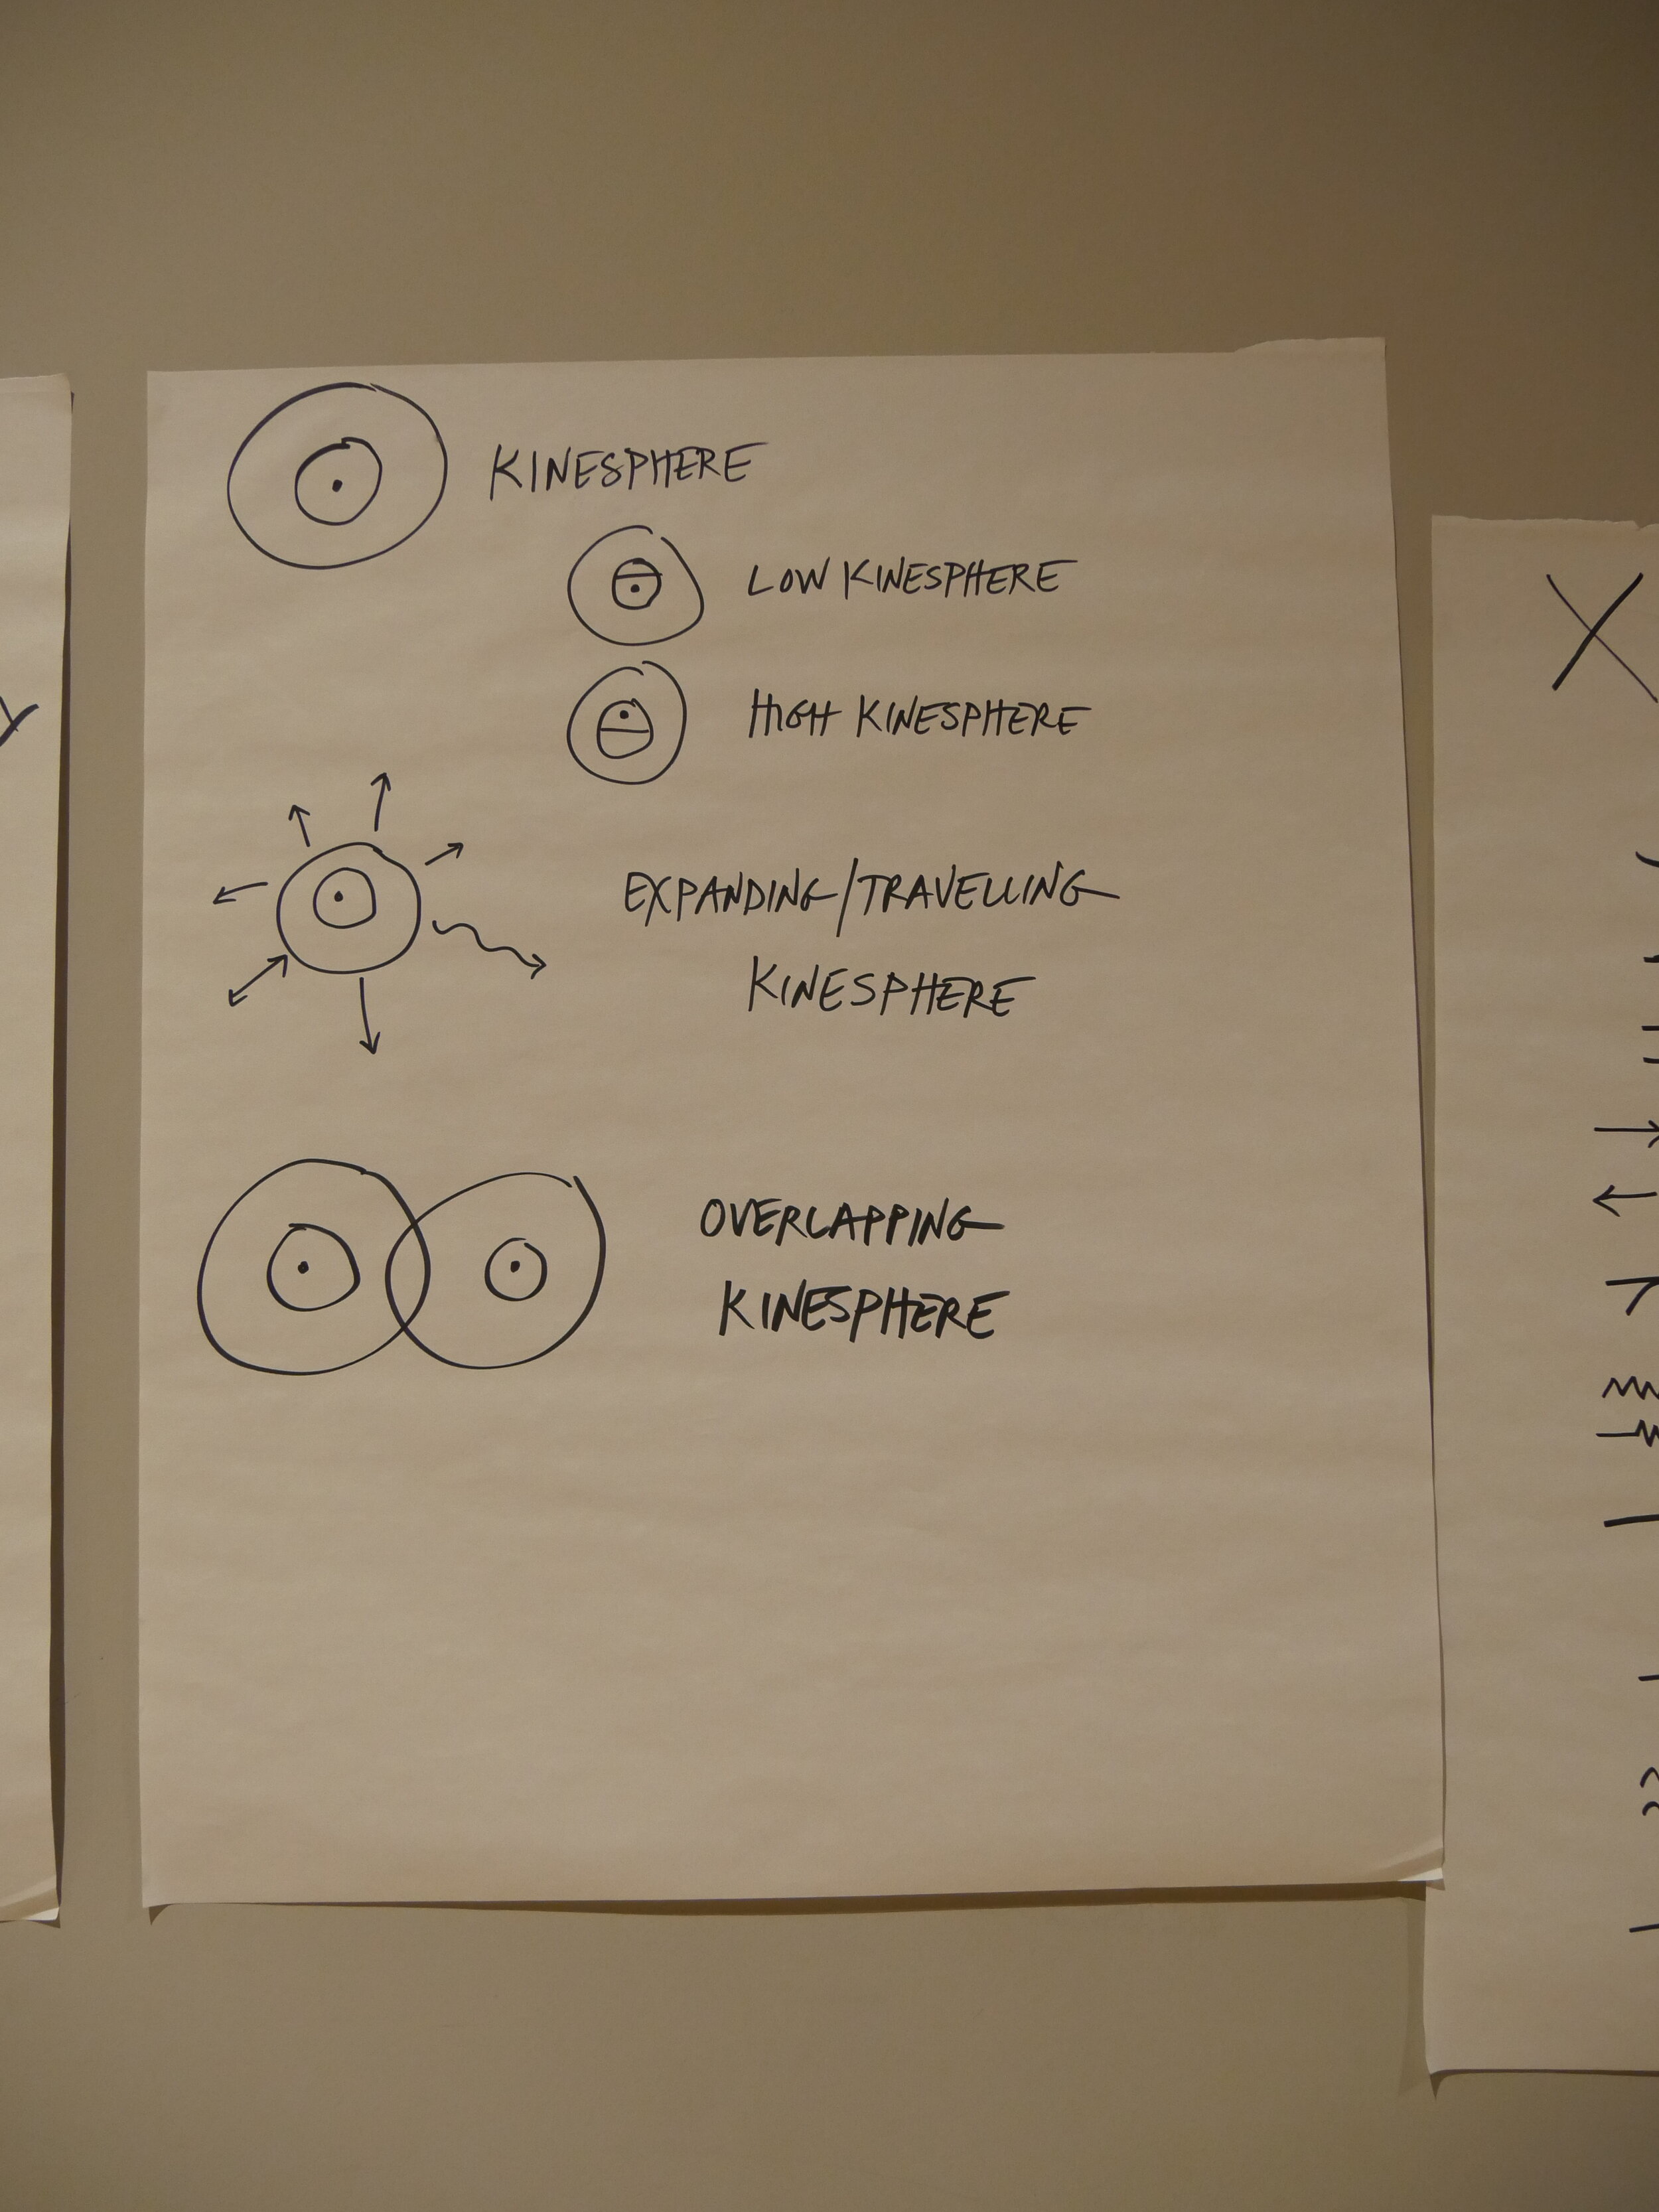 KINESPHERE
LOW KINESPHERE
HIGH KINESPHERE
EXPANDING/TRAVELLING
KINESPHERE
OVERLAPPING
KINESPHERE